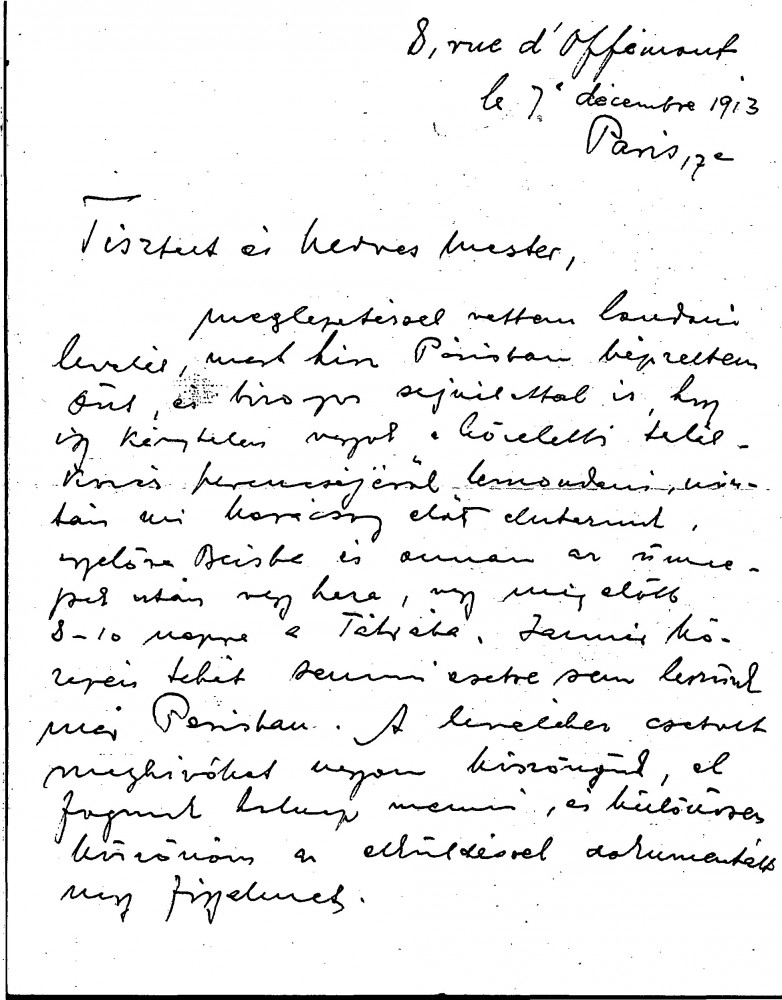 8, rue d'Offémont
le 7e décembre 1913
Paris, 17e
Tisztelt és kedves Mester,
meglepetéssel vettem londoni
levelét, mert hisz Párisban képzeltem
Önt, és bizonyos sajnálattal is, hogy
így kénytelen vagyok a közeletti talál-
kozás perencséjéről lemondani, miu-
tán mi karácsony előtt elutazunk,
egyelőre Bécsbe és onnan az ünne-
pek után vagy haza, vagy még előbb
8-10 napra a Tátrába. Január kö-
zepén tehát semmi esetre sem leszünk
már Párisban. A leveléhez csatolt
meghívókat nagyon köszönjük, el
fogunk menni, és különösen
köszönöm az elküldéssel dokumentált
nagy figyelmet.